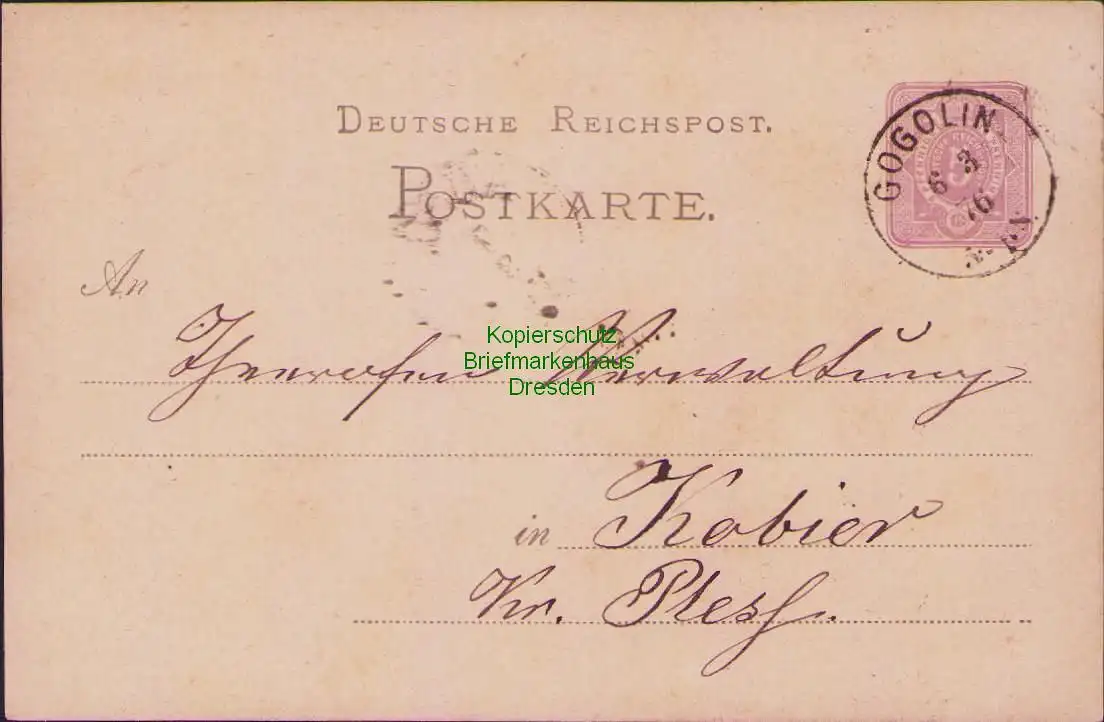 DEUTSCHE REICHSPOST.
POSTKARTE.
GOGOLIN
6 3
76
An
Theerofen Verwaltung
Kopierschutz
Briefmarkenhaus
Dresden
in Kobier
Kr. Pless.